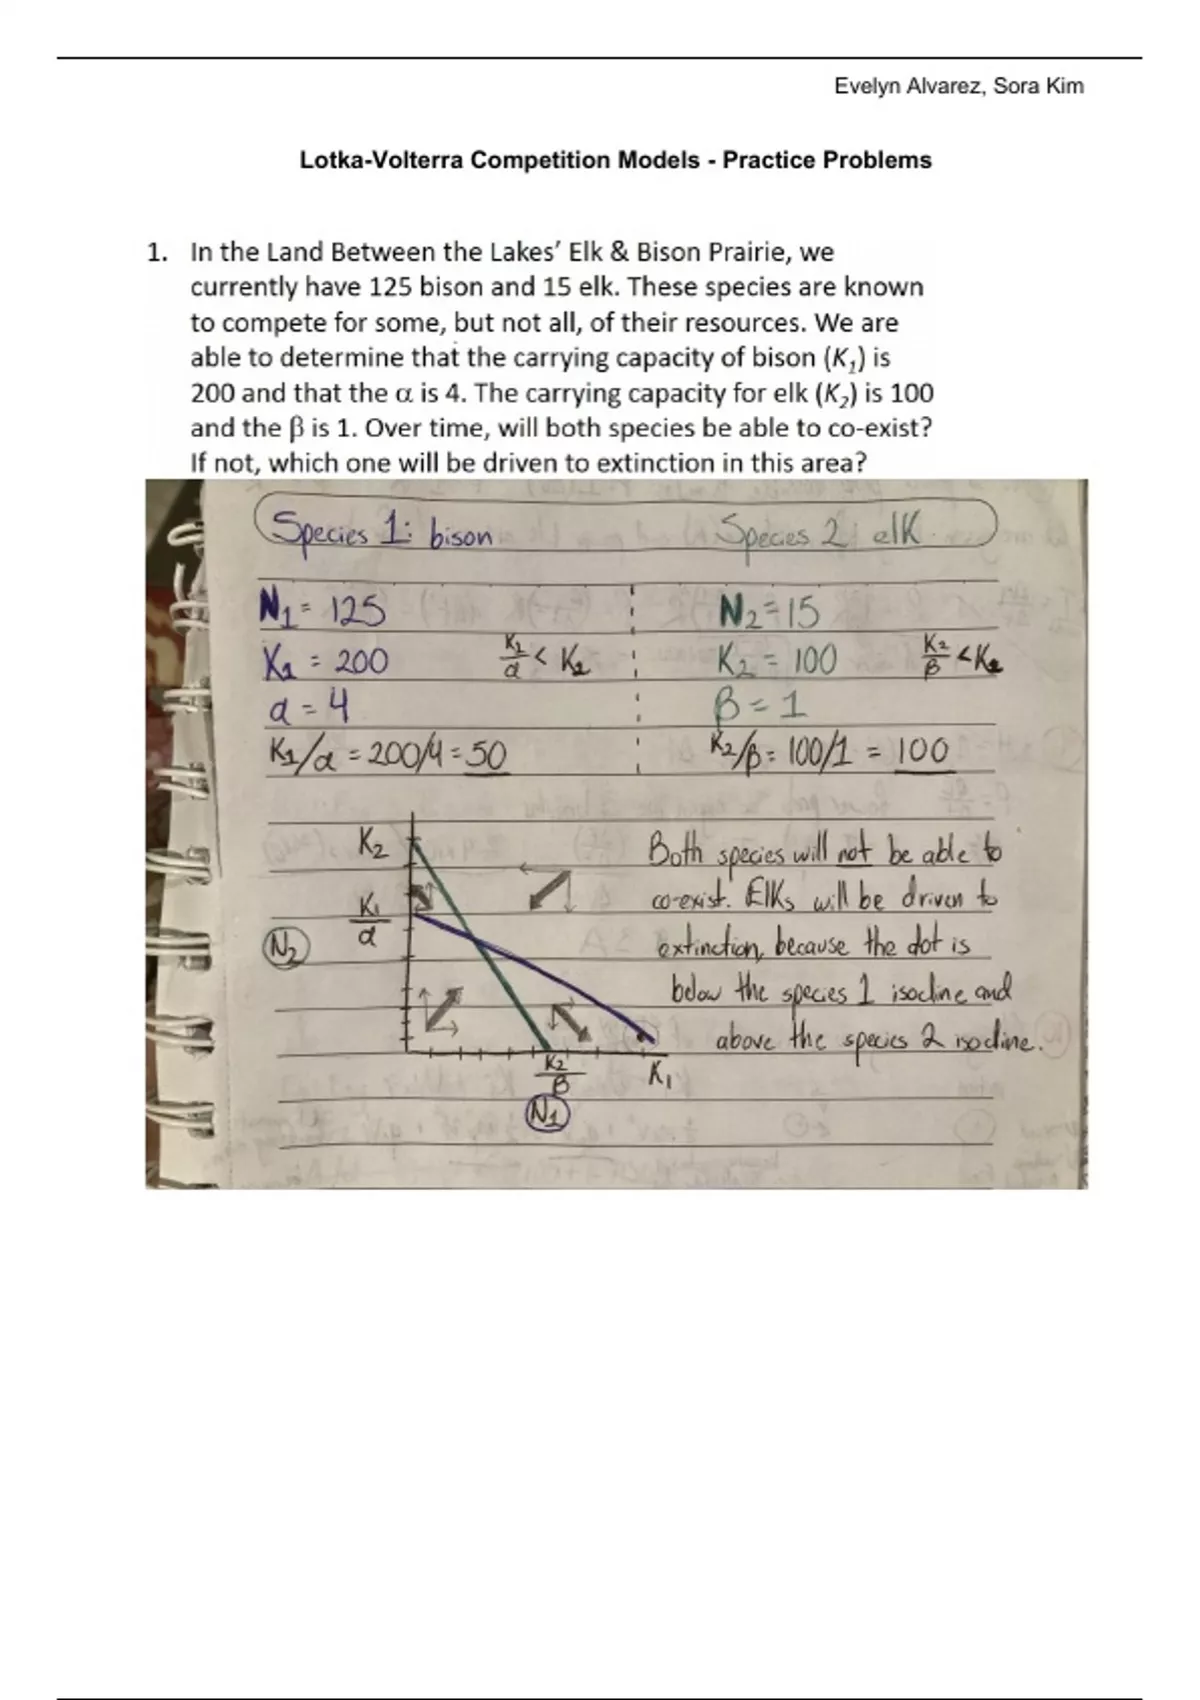 Evelyn Alvarez, Sora Kim
Lotka-Volterra Competition Models - Practice Problems
1. In the Land Between the Lakes' Elk & Bison Prairie, we
currently have 125 bison and 15 elk. These species are known
to compete for some, but not all, of their resources. We are
able to determine that the carrying capacity of bison (K₁) is
200 and that the α is 4. The carrying capacity for elk (K₂) is 100
and the β is 1. Over time, will both species be able to co-exist?
If not, which one will be driven to extinction in this area?
Species 1: bison Species 2 elK
N₁ = 125 N₂=15
K₁ = 200 K₁/α < K₂ K₂ = 100 K₂/β < K₁
α = 4 β = 1
K₁/α = 200/4 = 50 K₂/β = 100/1 = 100
K₂
K₁/α
N₂
K₂/β
K₁
N₁
Both species will not be able to
co-exist. Elks will be driven to
extinction, because the dot is
below the species 1 isocline and
above the species 2 isocline.